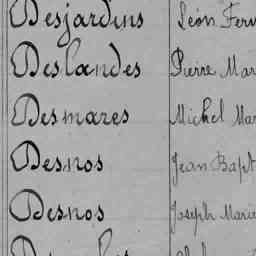 Desjardins Léon Fer
Deslandes Pierre Mar
Desmares Michel Mar
Desnos Jean Bapt
Desnos Joseph Marie